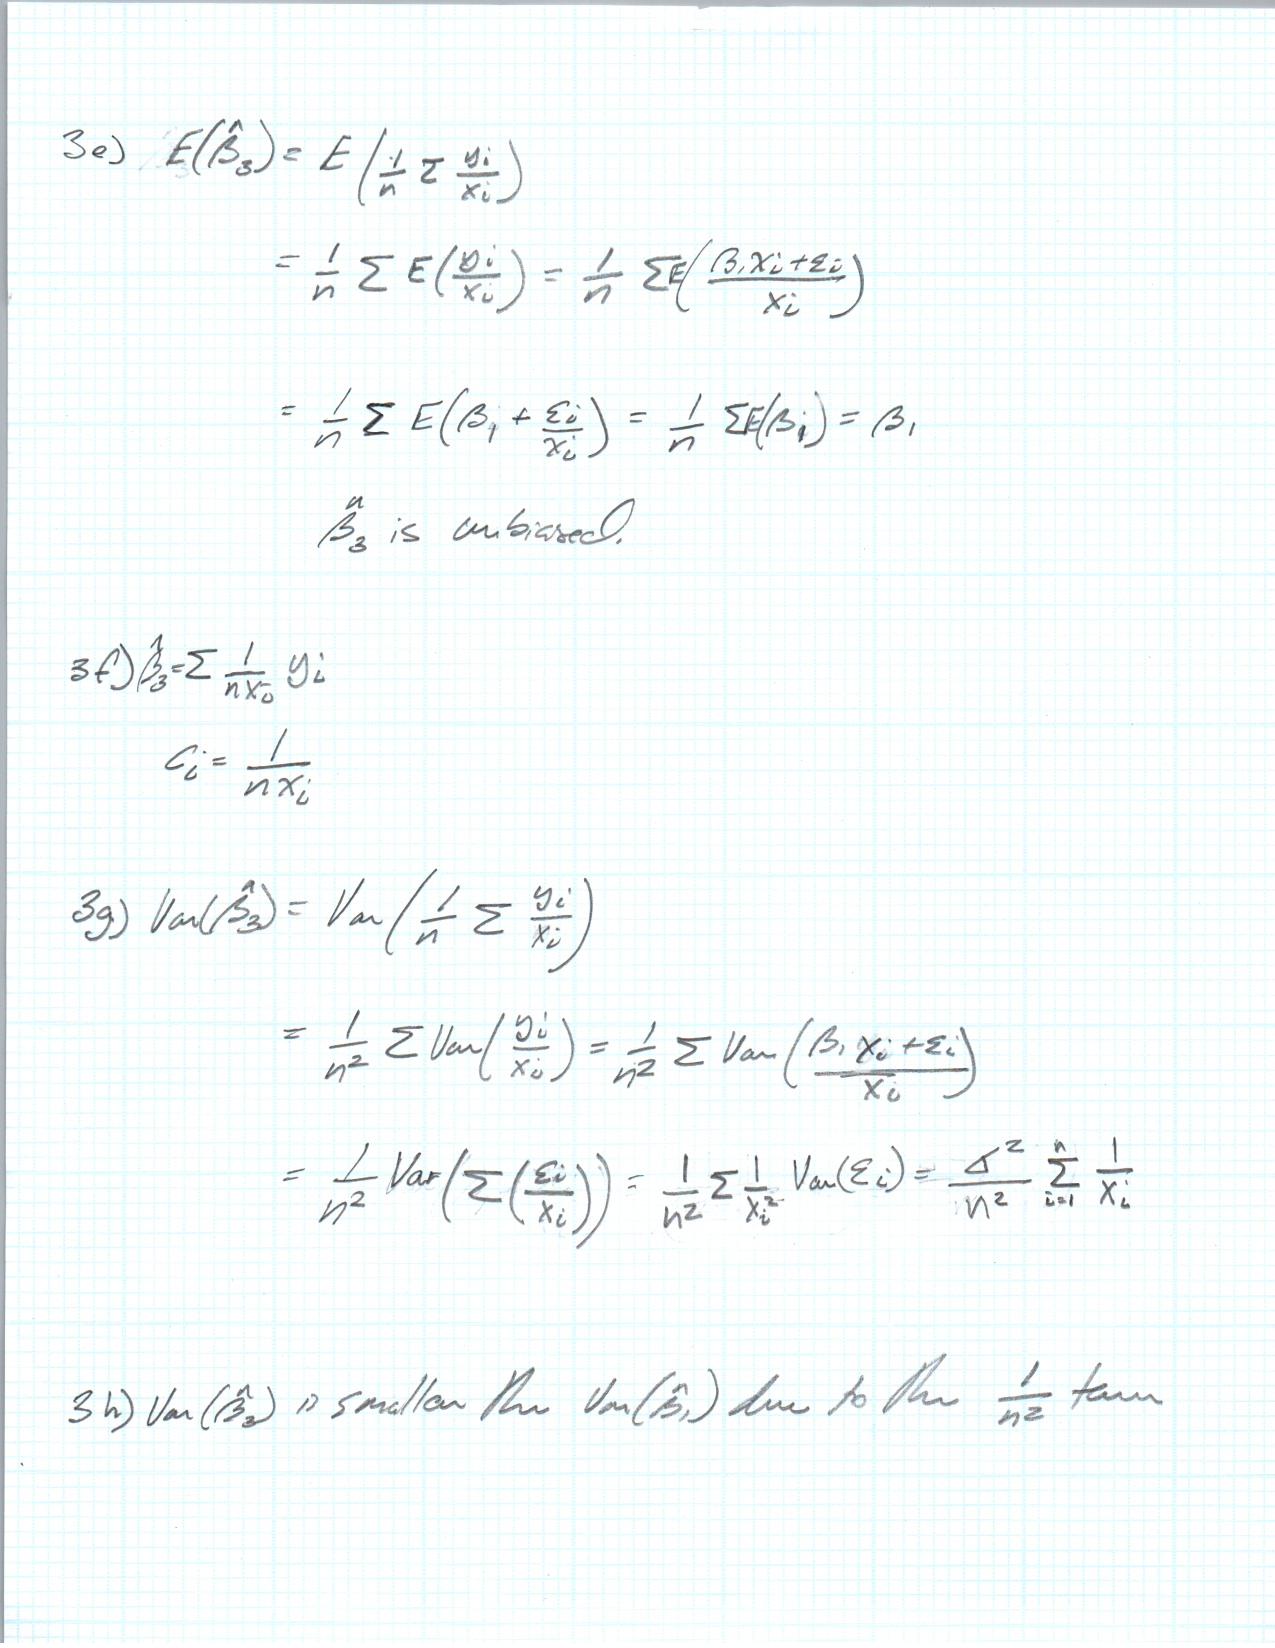 3e) E(β̂₃) = E(1/n Σ yᵢ/xᵢ)
= 1/n Σ E(yᵢ/xᵢ) = 1/n ΣE((β₁xᵢ+εᵢ)/xᵢ)
= 1/n Σ E(β₁ + εᵢ/xᵢ) = 1/n ΣE(β₁) = β₁
β̂₃ is unbiased.
3f) β̂₃ = Σ 1/(nxᵢ) yᵢ
cᵢ = 1/(nxᵢ)
3g) Var(β̂₃) = Var(1/n Σ yᵢ/xᵢ)
= 1/n² Σ Var(yᵢ/xᵢ) = 1/n² Σ Var((β₁xᵢ+εᵢ)/xᵢ)
= 1/n² Var(Σ(εᵢ/xᵢ)) = 1/n² Σ 1/xᵢ² Var(εᵢ) = σ²/n² Σᵢ₌₁ⁿ 1/xᵢ
3h) Var(β̂₃) is smaller than Var(β̂₁) due to the 1/n² term